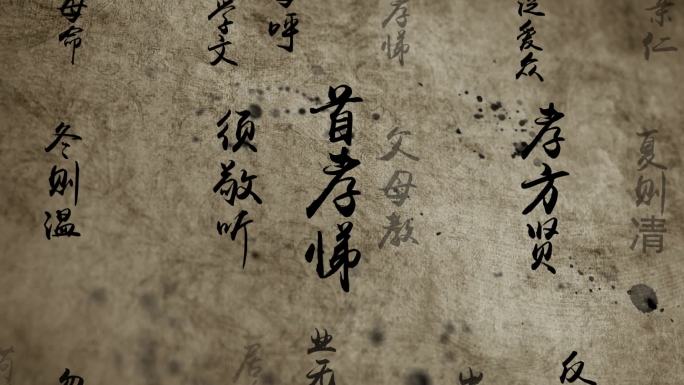 母命
学文
呼
孝悌
泛爱众
亲仁
冬则温
须敬听
首孝悌
父母教
孝方贤
夏则清
勿
居
业无
反